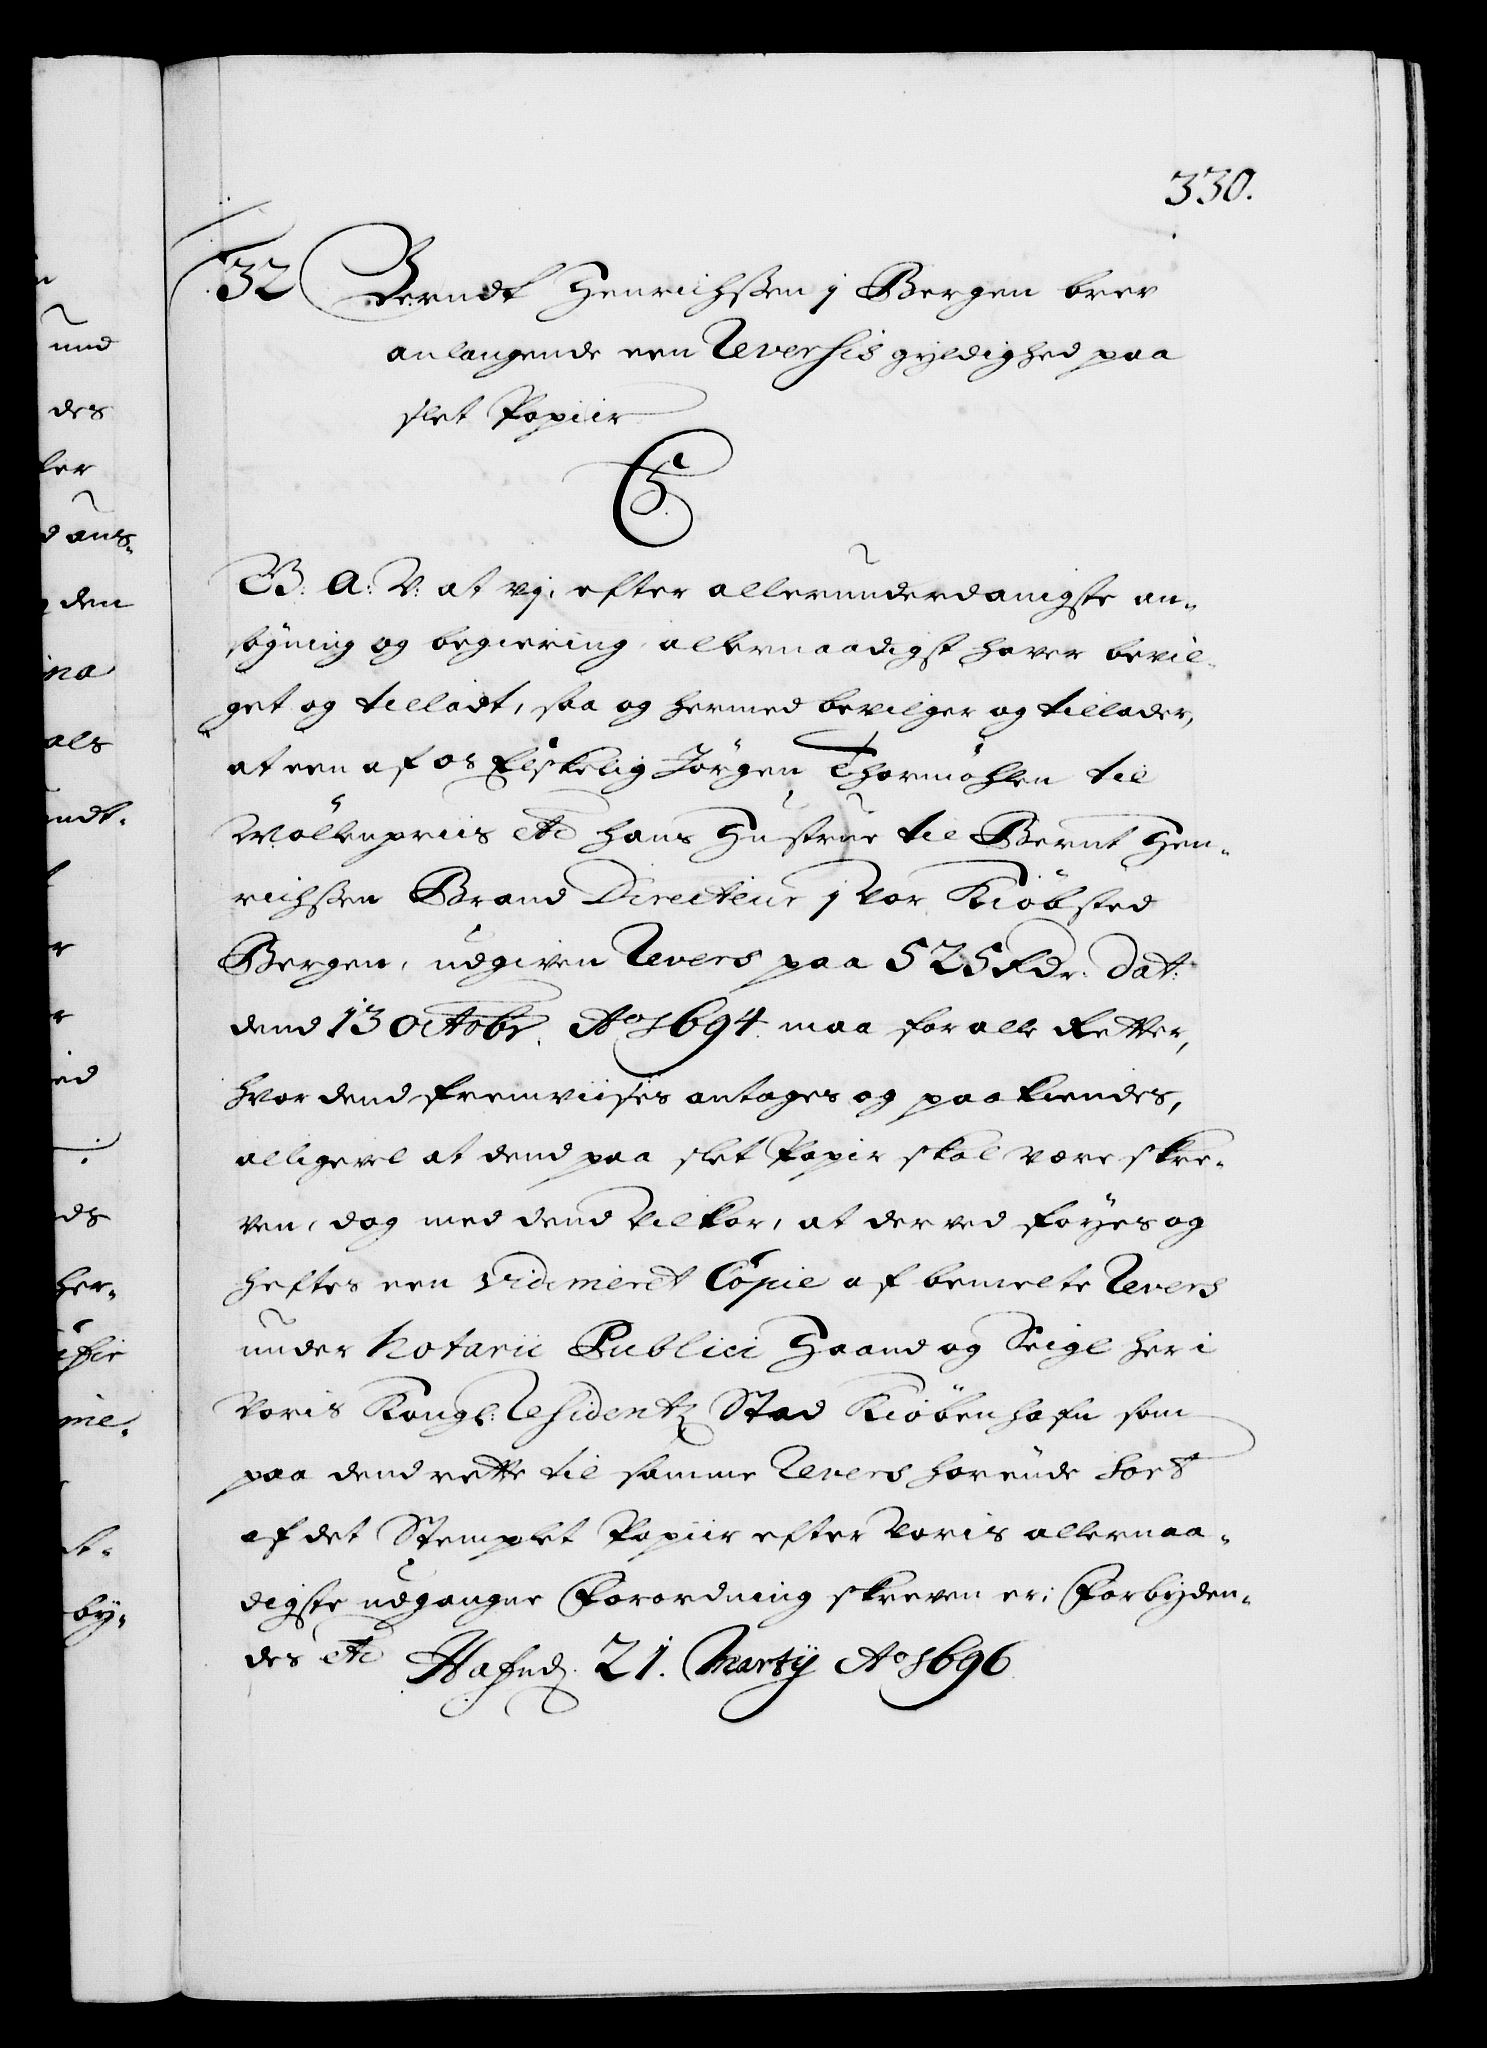 330.
32 Berndt Henrichssen j Bergen brev
anlangende een Reversis gyldighed paa
slet Papiir
C5.
G: A: V: at vj, efter allerunderdanigste an-
søgning og begiering, allernaadigst haver bevil-
get og tilladt, saa og hermed bevilger og tillader,
at een af os Elskelig Jörgen Thormöhlen til
Wöllenpriis etc hans Hustrue til Bernt Hen-
richssen Brand Directeur j vor Kiöbsted
Bergen, udgiven Revers paa 525 Rdr. Dat:
dend 13 Octobr. Ao 1694. maa for alle Retter,
hvor dend fremviises antages og paakiendes,
alligevel at dend paa slet Papir skal være skre-
ven, dog med dend Vilkor, at der ved föyes og
heftes een vidimeret Copie af bemelte Revers
under Notarii Publici Haand og Seigl her i
Voris Kongl: Residentz Stad Kiöbenhafn som
paa dend rette til samme Revers hörende Sort
af det Stemplet Papiir efter Voris allernaa-
digste udgangne Forordning skreven er; Forbyden-
des etc Hafnd. 21. Martij Ao 1696
und
des
ler
den
als
her-
me.
by-